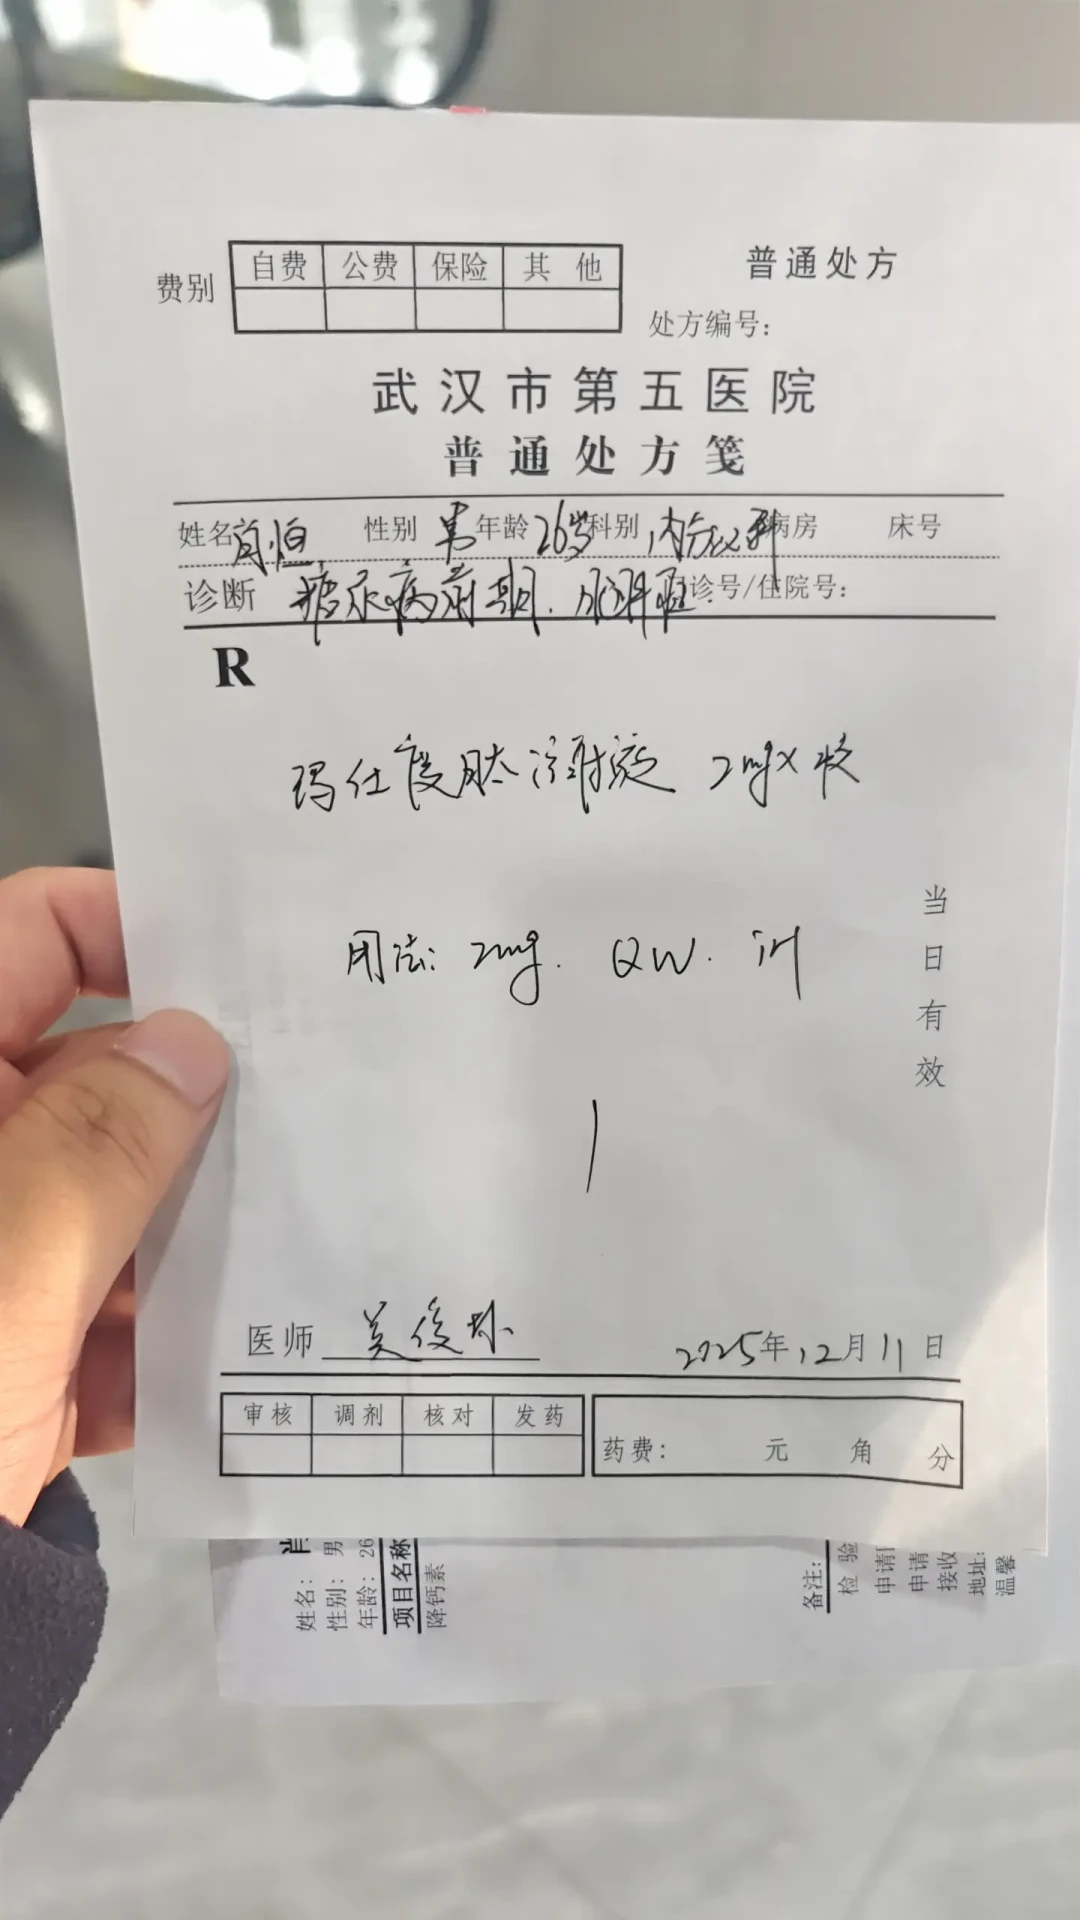 自费 公费 保险 其他
费别
普通处方
处方编号：
武汉市第五医院
普通处方笺
姓名 肖恒 性别 男 年龄 26岁 科别 内分泌科 病房 床号
诊断 糖尿病前期. 诊号/住院号：
R
玛仕度肽注射液 2mg×
用法: 2mg. QW. iH
当日有效
医师 吴俊
2025年12月11日
审核 调剂 核对 发药
药费： 元 角 分
姓名： 肖
性别： 男
年龄： 26
项目名称
降钙素
备注：
检验
申请
申请
接收
地址：
温馨